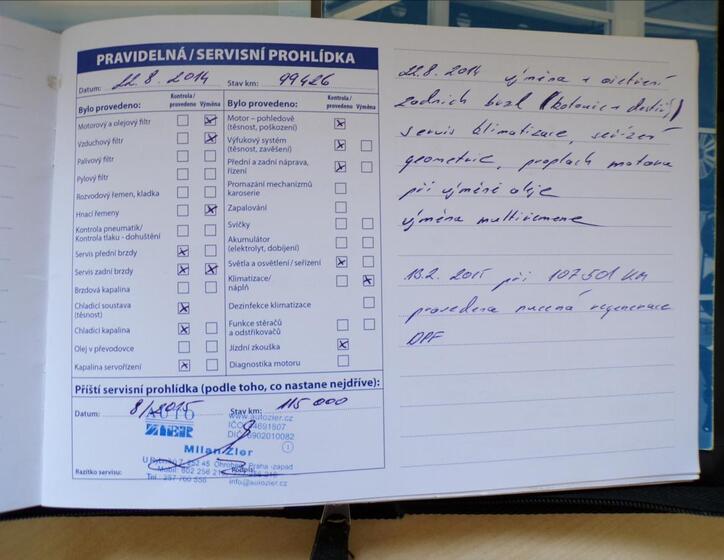 PRAVIDELNÁ / SERVISNÍ PROHLÍDKA
Datum: 22.8.2014 Stav km: 99426
Bylo provedeno: Kontrola / provedeno Výměna
Motorový a olejový filtr
Vzduchový filtr
Palivový filtr
Pylový filtr
Rozvodový řemen, kladka
Hnací řemeny
Kontrola pneumatik/
Kontrola tlaku - dohuštění
Servis přední brzdy
Servis zadní brzdy
Brzdová kapalina
Chladicí soustava
(těsnost)
Chladicí kapalina
Olej v převodovce
Kapalina servořízení
Bylo provedeno: Kontrola / provedeno Výměna
Motor – pohledově
(těsnost, poškození)
Výfukový systém
(těsnost, zavěšení)
Přední a zadní náprava,
řízení
Promazání mechanizmů
karoserie
Zapalování
Svíčky
Akumulátor
(elektrolyt, dobíjení)
Světla a osvětlení / seřízení
Klimatizace/
náplň
Dezinfekce klimatizace
Funkce stěračů
a odstřikovačů
Jízdní zkouška
Diagnostika motoru
Příští servisní prohlídka (podle toho, co nastane nejdříve):
Datum: 8/2015 Stav km: 115 000
AUTO
ZIER
www.autozier.cz
Milan Zier
Praha -zapad
Razítko servisu: Podpis:
info@autozier.cz
22.8.2014 výměna + ošetření
zadních brzd (kotouče + destič,)
servis klimatizace, seřízení
geometrie, proplach motoru
při výměně oleje
výměna multiřemene
13.2. 2015 při 107501 KM
provedena nucená regenerace
DPF